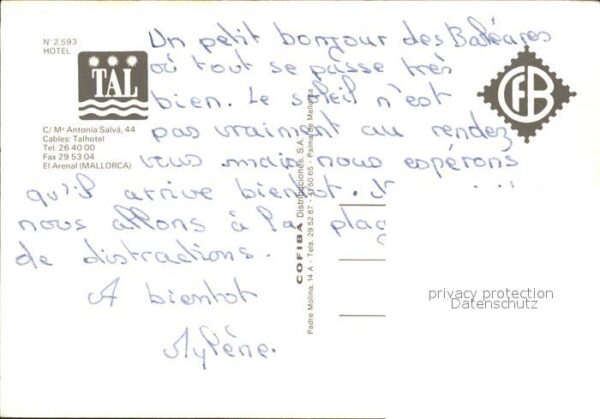 N° 2.593
HOTEL
TAL
C/ Mª Antonia Salvá, 44
Cables: Talhotel
Tel. 26 40 00
Fax 29 53 04
El Arenal (MALLORCA)
Un petit bonjour des Baléares
où tout se passe très
bien. Le soleil n'est
pas vraiment au rendez
vous mais nous espérons
qu'il arrive bientot.
nous allons à la
de distractions.
A bientot
Mylène.
COFIBA Distribuciones, S.A.
Padre Molina, 14 A - Tels. 29 52 87 - 4750 65 - Palma de Mallorca
CFB
privacy protection
Datenschutz